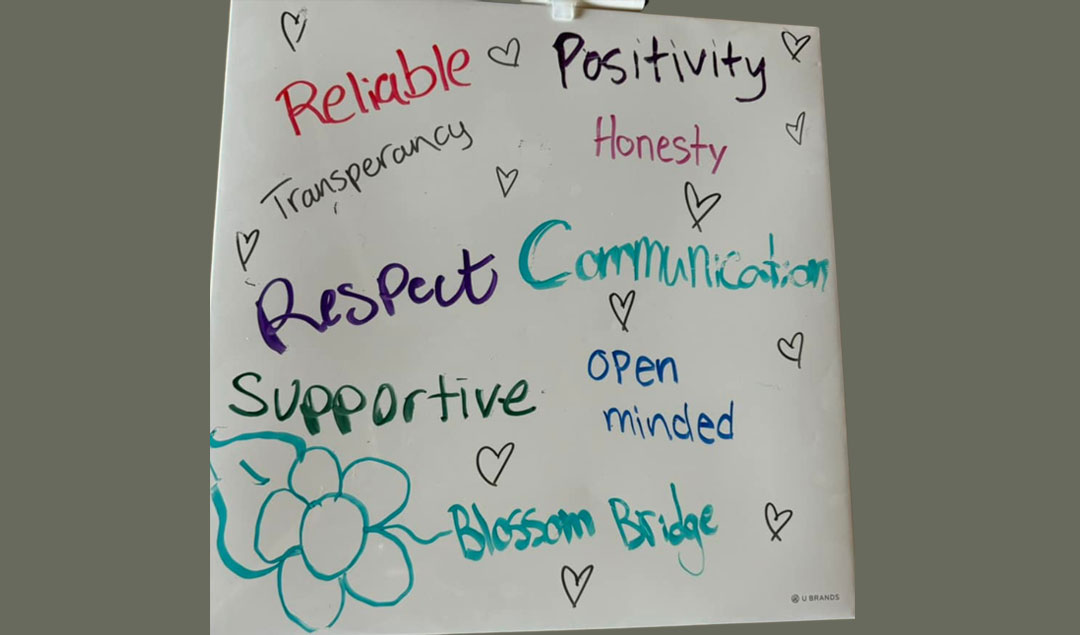 Reliable
Positivity
Transperancy
Honesty
Respect
Communication
Supportive
open
minded
Blossom Bridge
U BRANDS